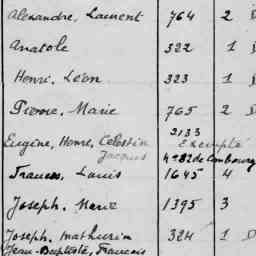 Alexandre, Laurent 764 2
Anatole 322 1
Henri, Léon 323 1
Pierre, Marie 765 2
2133
Eugène, Henri, Célestin Exempté
Jacques 4e 82 de Combourg
Francois, Louis 1645 4
Joseph, Marie 1395 3
Joseph, Mathurin 324 1
Jean-Baptiste, Francois